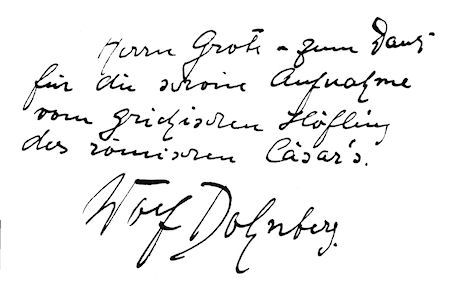 Herrn Grote – zum Dank
für die schöne Aufnahme
vom griechischen Höfling
des römischen Cäsar's.
Wolf Dohnberg.